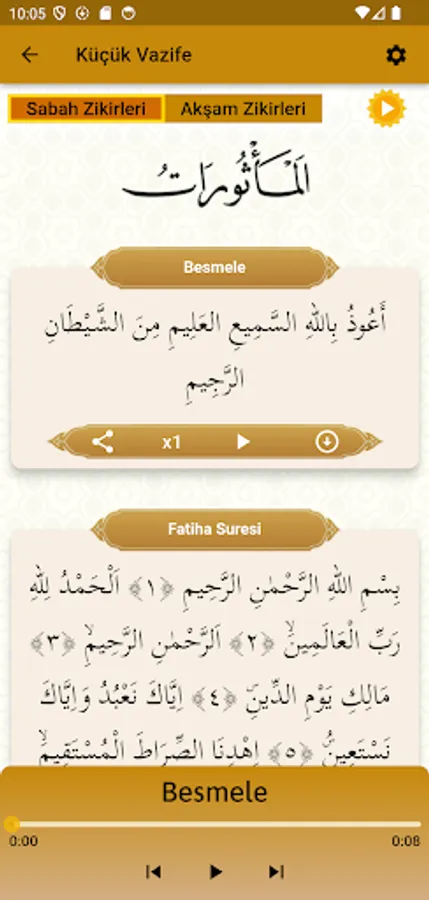 10:05
Küçük Vazife
Sabah Zikirleri Akşam Zikirleri
المَأْثُورَات
Besmele
أَعُوذُ بِاللهِ السَّمِيعِ العَلِيمِ مِنَ الشَّيْطَانِ
الرَّجِيمِ
x1
Fatiha Suresi
بِسْمِ اللهِ الرَّحْمٰنِ الرَّحِيمِ ﴿١﴾ اَلْحَمْدُ لِلّٰهِ
رَبِّ الْعَالَمِينَۙ ﴿٢﴾ اَلرَّحْمٰنِ الرَّحِيمِۙ ﴿٣﴾
مَالِكِ يَوْمِ الدِّينِۜ ﴿٤﴾ اِيَّاكَ نَعْبُدُ وَاِيَّاكَ
نَسْتَعِينُۜ ﴿٥﴾ اِهْدِنَا الصِّرَاطَ الْمُسْتَقِيمَۙ
Besmele
0:00 0:08